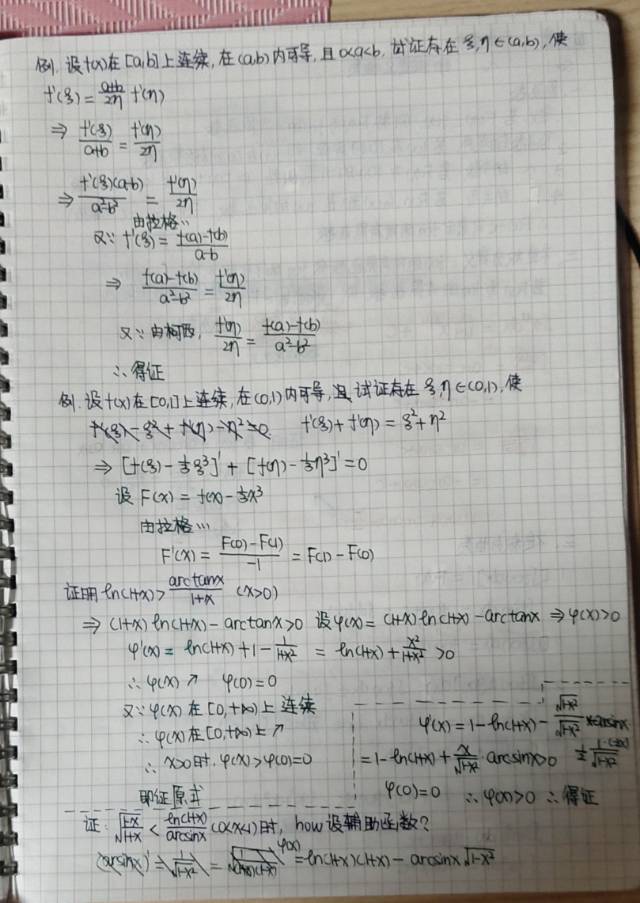 例. 设f(x)在[a,b]上连续,在(a,b)内可导,且0<a<b,试证存在ξ,η∈(a,b),使
f'(ξ)=\frac{a+b}{2η}f'(η)
⇒ \frac{f'(ξ)}{a+b}=\frac{f'(η)}{2η}
⇒ \frac{f'(ξ)(a-b)}{a²-b²}=\frac{f'(η)}{2η}
由拉格…
又∵ f'(ξ)=\frac{f(a)-f(b)}{a-b}
⇒ \frac{f(a)-f(b)}{a²-b²}=\frac{f'(η)}{2η}
又∵由柯西, \frac{f'(η)}{2η}=\frac{f(a)-f(b)}{a²-b²}
∴得证
例. 设f(x)在[0,1]上连续,在(0,1)内可导, 试证存在ξ,η∈(0,1),使
f'(ξ)+f'(η)=ξ²+η²
⇒ [f(ξ)-\frac{1}{3}ξ³]'+[f(η)-\frac{1}{3}η³]'=0
设F(x)=f(x)-\frac{1}{3}x³
由拉格…
F'(x)=\frac{F(0)-F(1)}{-1}=F(1)-F(0)
证明 ln(1+x)>\frac{arctanx}{1+x} (x>0)
⇒ (1+x)ln(1+x)-arctanx>0 设φ(x)=(1+x)ln(1+x)-arctanx ⇒φ(x)>0
φ'(x)=ln(1+x)+1-\frac{1}{1+x²}=ln(1+x)+\frac{x²}{1+x²}>0
∴φ(x)↗ φ(0)=0
又∵φ(x)在[0,+∞)上连续
∴φ(x)在[0,+∞)上↗
∴x>0时,φ(x)>φ(0)=0
即证原式
证: \sqrt{\frac{1-x}{1+x}}<\frac{ln(1+x)}{arcsinx}(0<x<1)时, how设辅助函数?
φ(x)=ln(1+x)(1+x)-arcsinx\sqrt{1-x²}
φ'(x)=1-ln(1+x)-
=1-ln(1+x)+\frac{x}{\sqrt{1-x²}}·arcsinx>0
φ(0)=0 ∴φ(x)>0 ∴得证